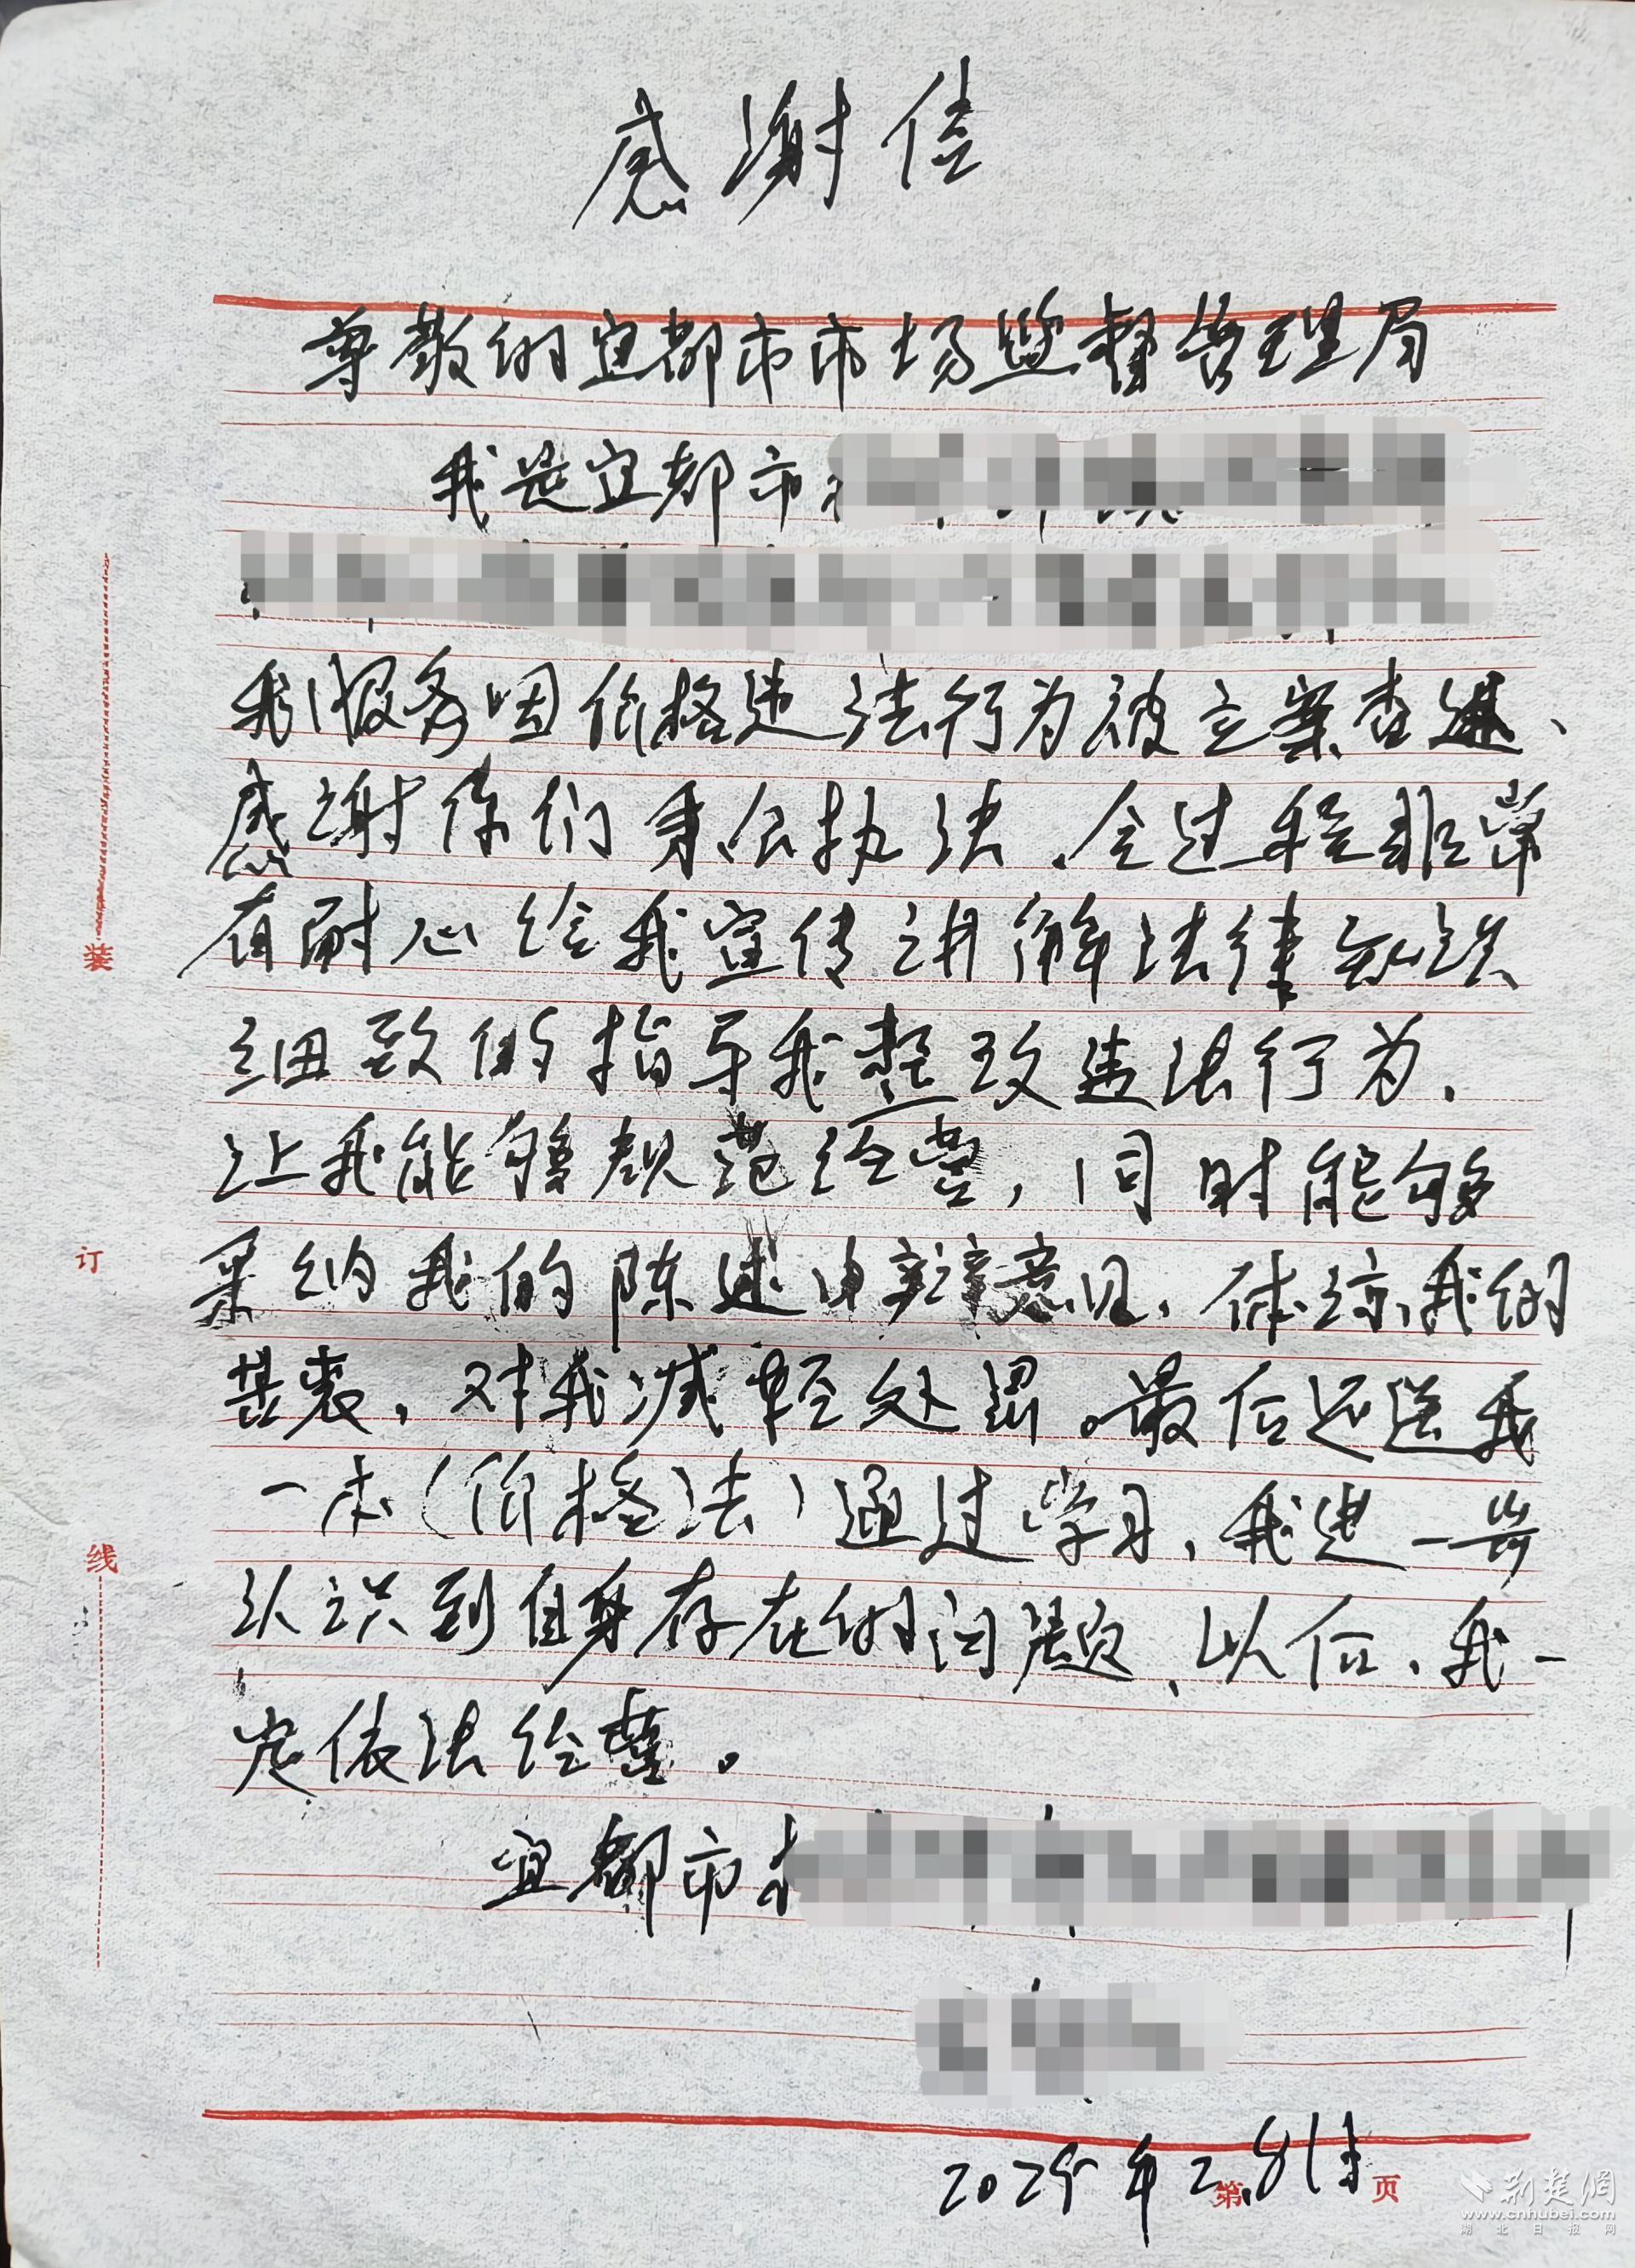 感谢信
尊敬的宜都市市场监督管理局
我是宜都市
我服务因价格违法行为被立案查处、
感谢你们秉公执法、全过程非常
有耐心给我宣传讲解法律知识
细致的指导我整改违法行为、
让我能够规范经营,同时能够
采纳我的陈述申辩意见、体谅我的
苦衷,对我减轻处罚。最后还送我
一本(价格法)通过学习,我进一步
认识到自身存在的问题、以后、我一
定依法经营。
宜都市
2025年2.8日
装
订
线
第
页
荆楚网
www.cnhubei.com
湖北日报网